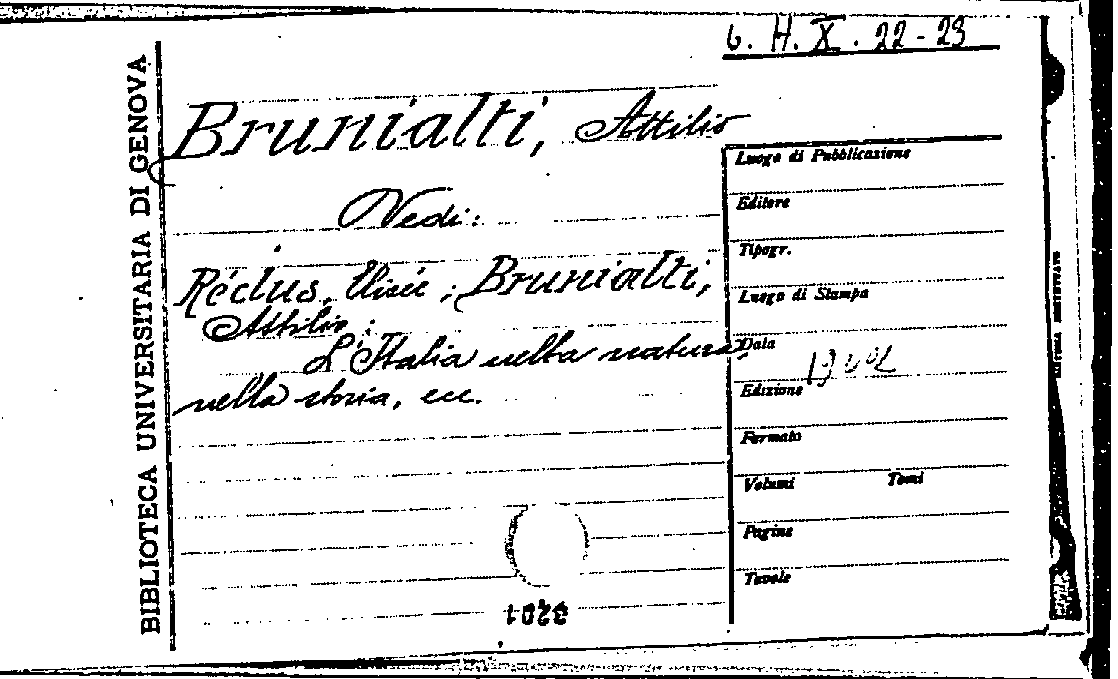 6. H. X. 22-23
BIBLIOTECA UNIVERSITARIA DI GENOVA
Brunialti, Attilio
Vedi:
Réclus, Elisée; Brunialti,
Attilio:
L'Italia nella natura,
nella storia, ecc.
Luogo di Pubblicazione
Editore
Tipogr.
Luogo di Stampa
Data
1902
Edizione
Formato
Volumi Tomi
Pagine
Tavole